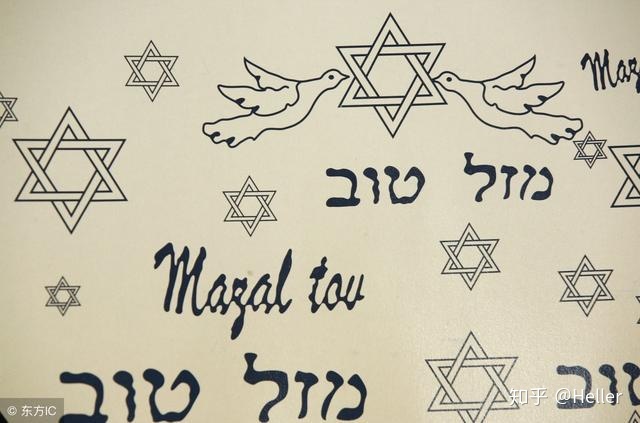 Maz
מזל טוב
Mazal tov
מזל טוב
טוב
知乎 @Heller
© 东方IC